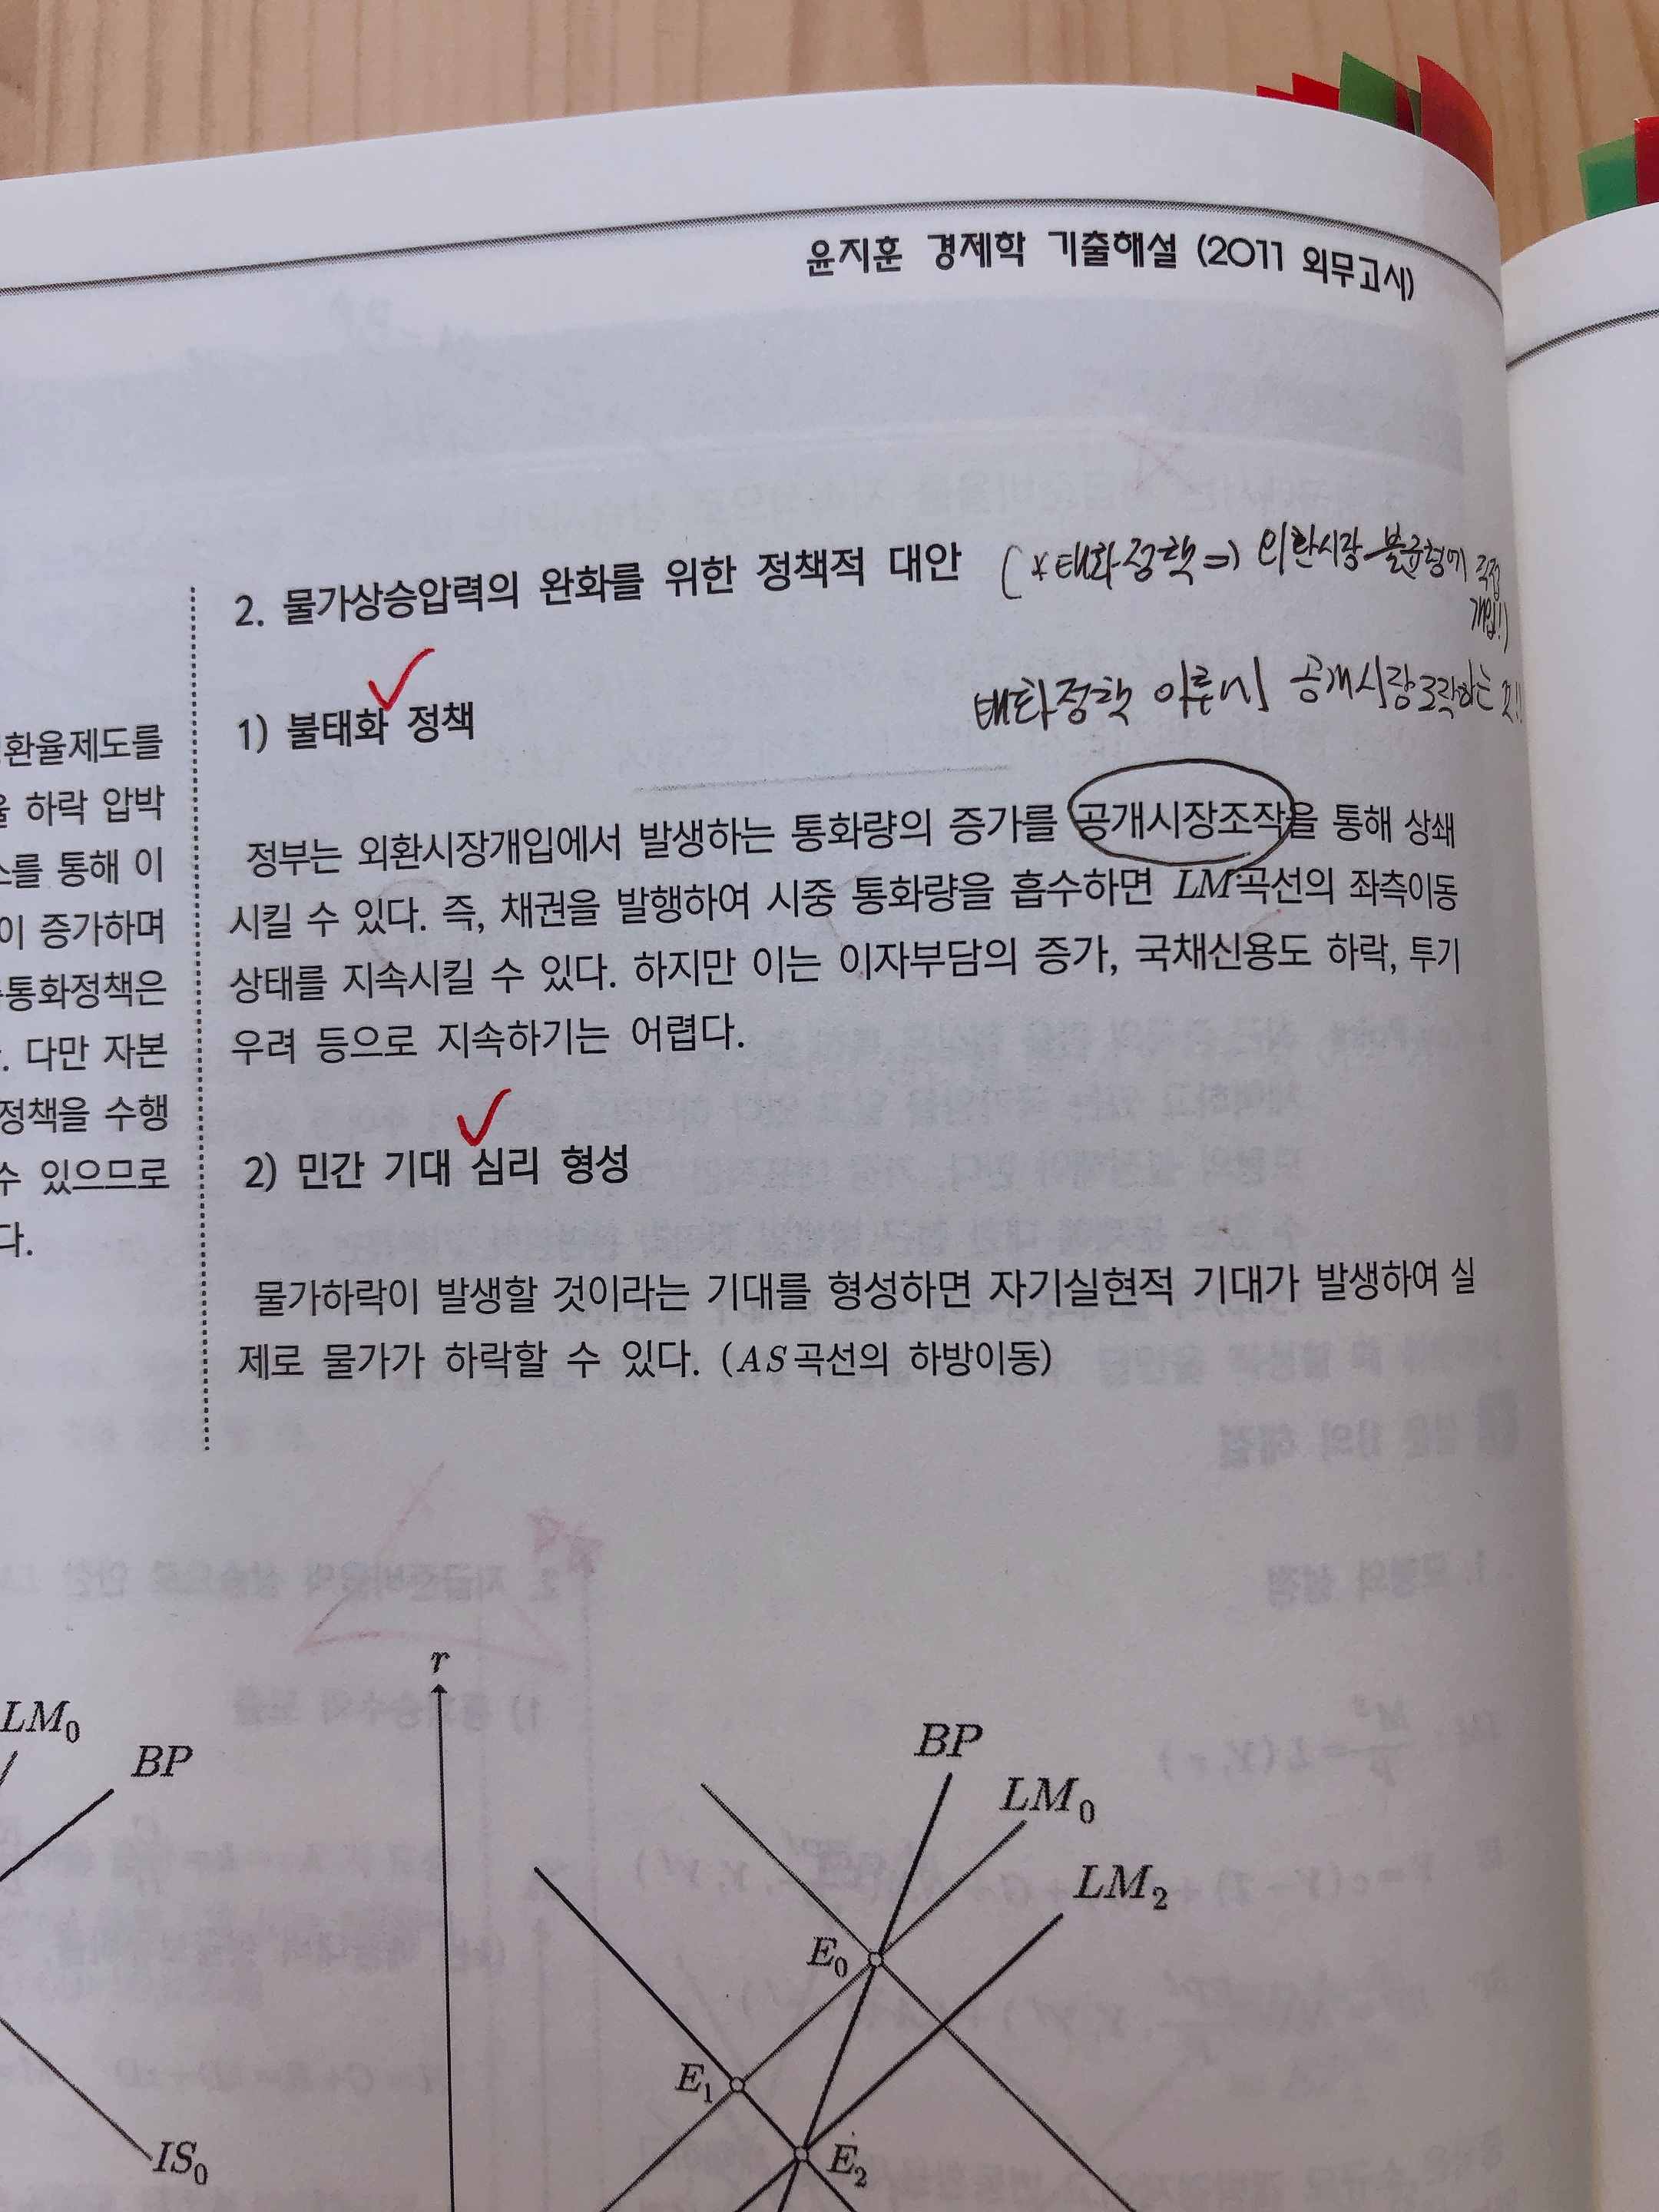 윤지훈 경제학 기출해설 (2011 외무고시)
환율제도를
하락 압박
를 통해 이
이 증가하며
통화정책은
. 다만 자본
정책을 수행
수 있으므로
다.
2. 물가상승압력의 완화를 위한 정책적 대안 (*태화정책 => 외환시장 불균형에 직접
개입!)
1) 불태화 정책
태화정책 이루시 공개시장조작하는 것!!
정부는 외환시장개입에서 발생하는 통화량의 증가를 공개시장조작을 통해 상쇄
시킬 수 있다. 즉, 채권을 발행하여 시중 통화량을 흡수하면 LM곡선의 좌측이동
상태를 지속시킬 수 있다. 하지만 이는 이자부담의 증가, 국채신용도 하락, 투기
우려 등으로 지속하기는 어렵다.
2) 민간 기대 심리 형성
물가하락이 발생할 것이라는 기대를 형성하면 자기실현적 기대가 발생하여 실
제로 물가가 하락할 수 있다. (AS곡선의 하방이동)
LM₀
BP
IS₀
r
BP
LM₀
LM₂
E₀
E₁
E₂